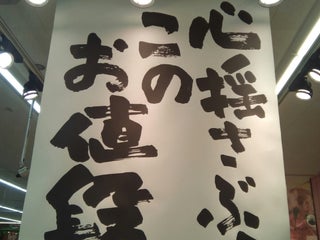 心揺さぶる
この
お値段